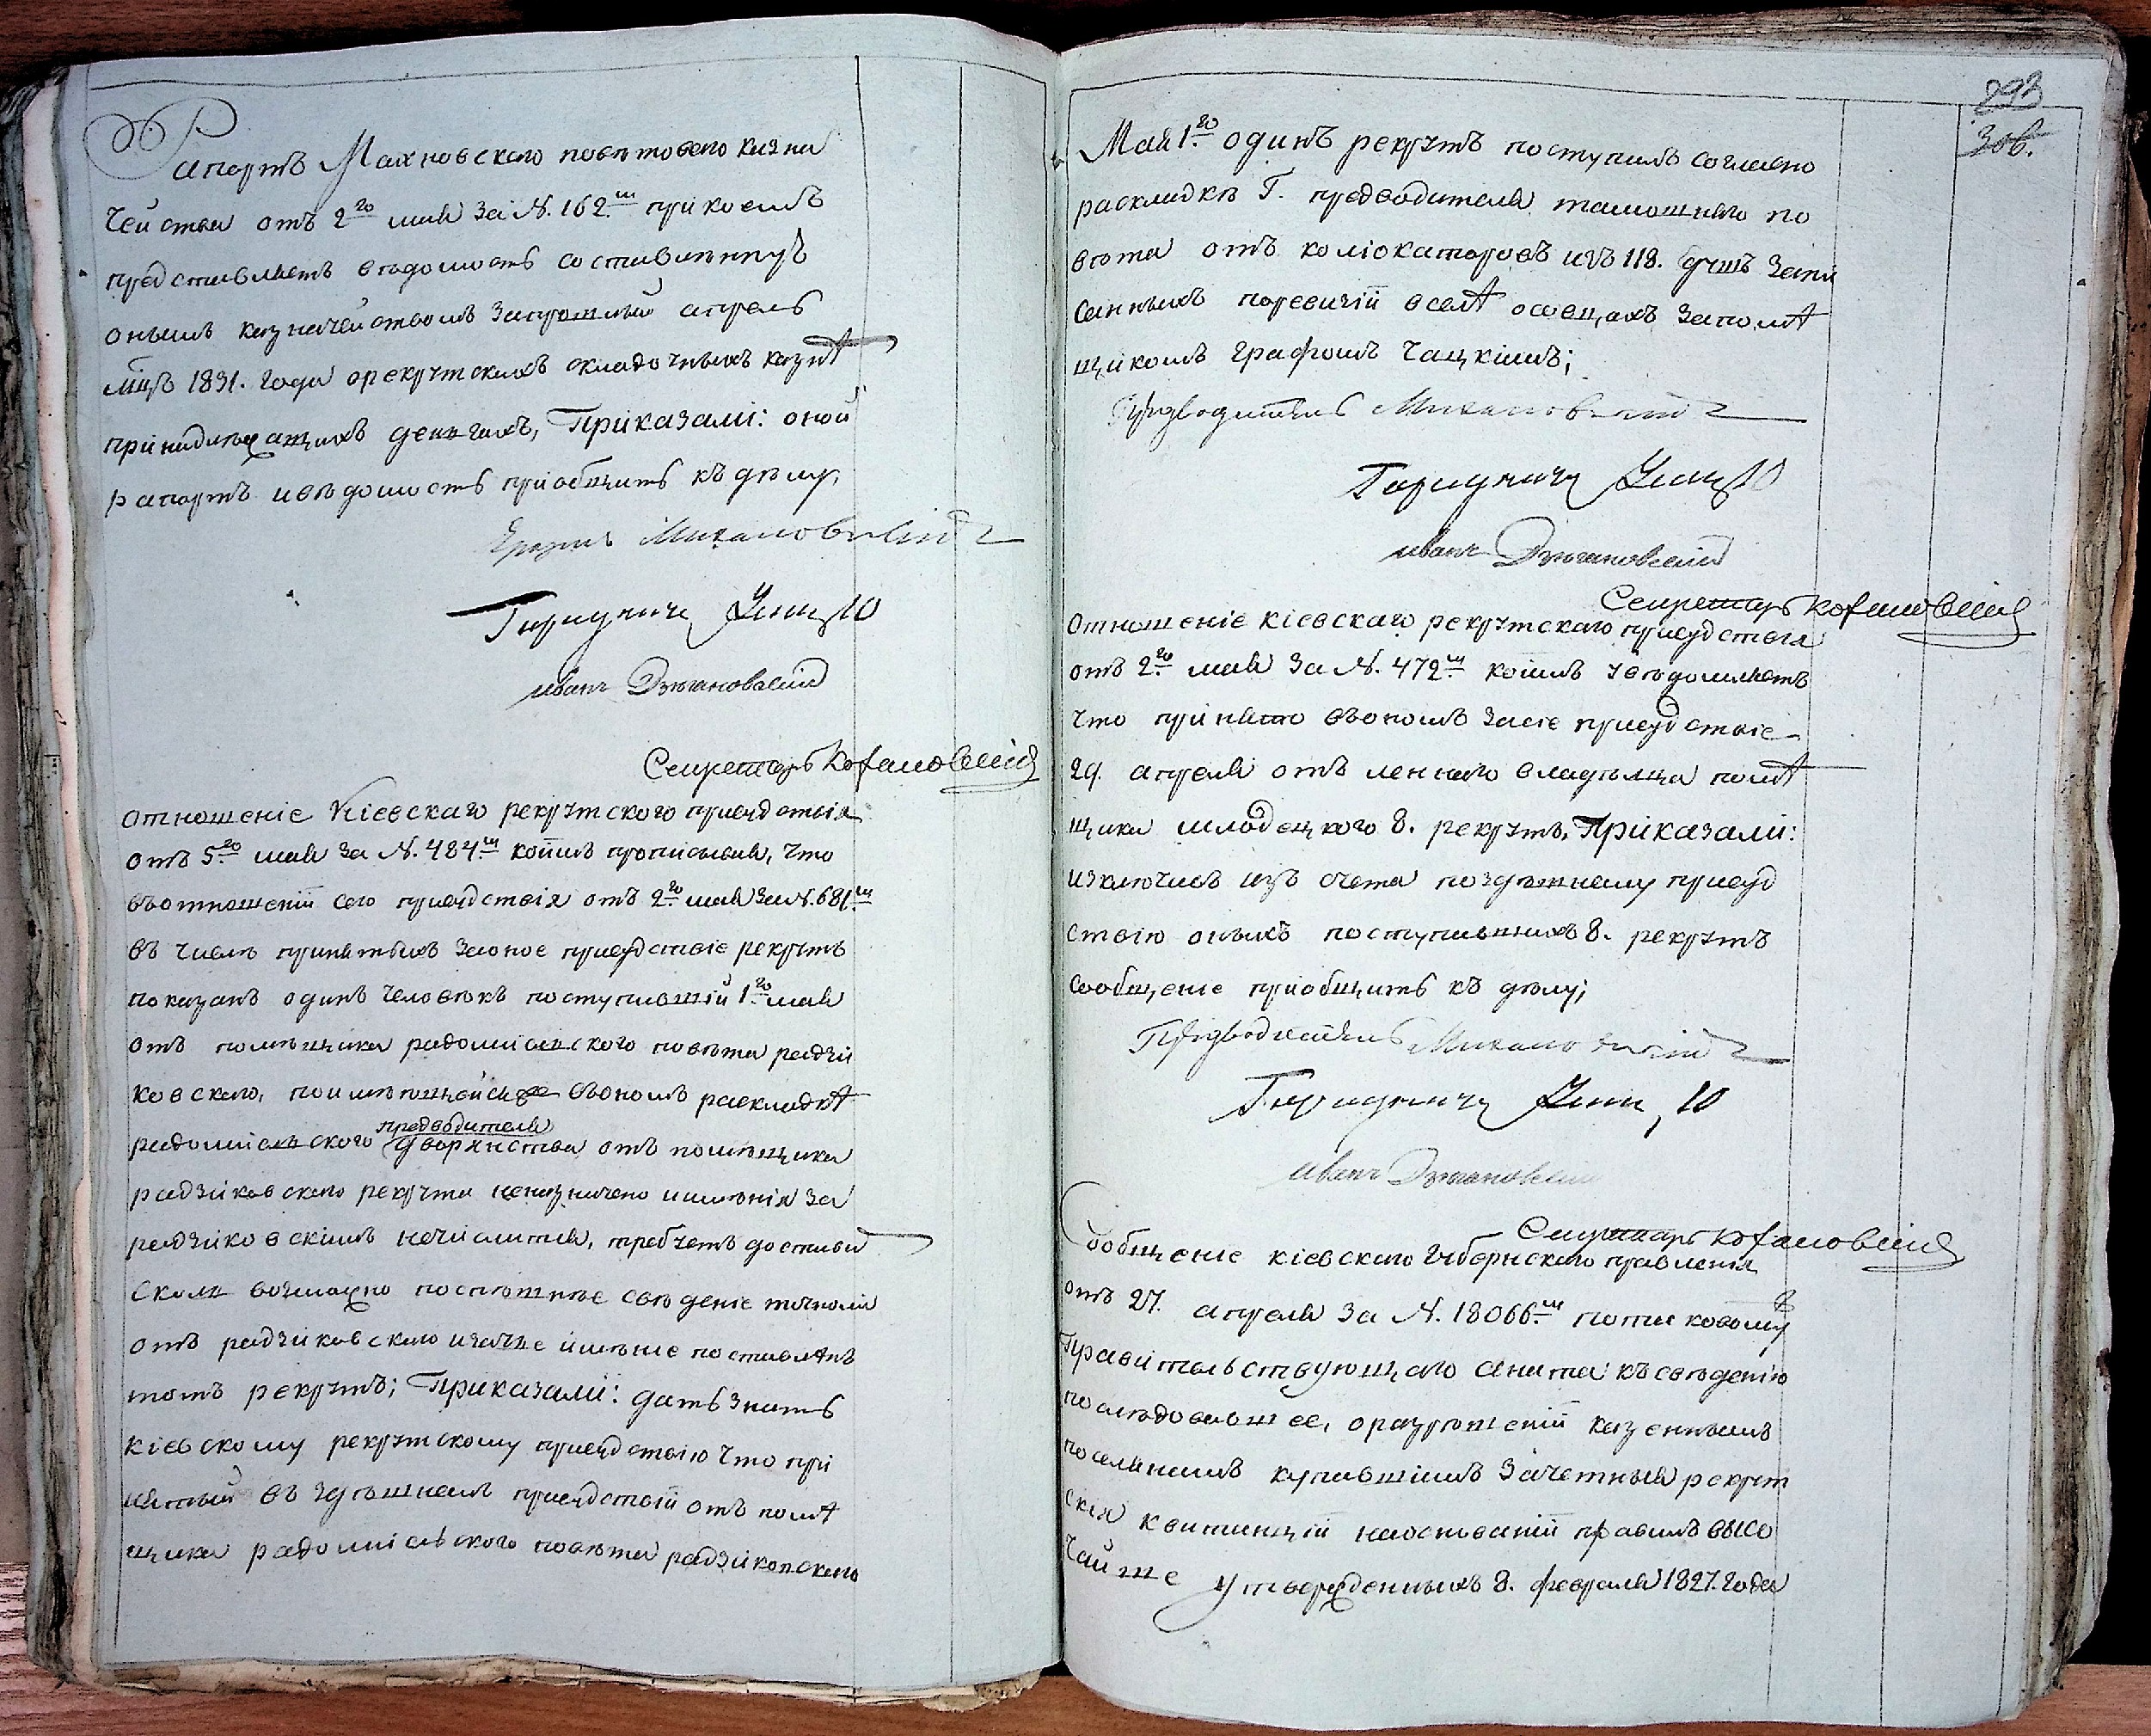 Рапортъ Махновскаго поветоваго казна
чейства отъ 2го мая за №. 162м при коемъ
представляетъ ведомость составленную
онымъ казначействомъ запрошлый апрель
мцъ 1831. года орекрутскихъ складочныхъ казнѣ
принадлежащихъ деньгахъ, Приказали: оной
рапортъ иведомость приобщить къ делу,
Городничи
иванъ
Секретарь
отношеніе Кіевскаго рекрутского присудствія
отъ 5го мая за №. 484м коимъ прописывая, что
въотношеніи сего присудствія отъ 2го мая За №. 681м
въ числе принятыхъ заоное присудствіе рекрутъ
показанъ одинъ человекъ поступившій 1го мая
отъ помещика радомисльского повета радзи
ковскаго, поимеющейся въономъ раскладкѣ
предводителя
радомисльского дворянства отъ помещика
радзиковскаго рекрута неназначено иименія за
радзиковскимъ нечислится, требуетъ достави
Сколь возможно поспешнее сведеніе точноли
отъ радзиковскаго изачье именіе поставленъ
тотъ рекрутъ; Приказали: дать знать
кіевскому рекрутскому присудствію что при
нятый въ здешнемъ присудствіи отъ помѣ
щика радомисльского повета радзиковскаго
293
306.
Мая 1го одинъ рекрутъ поступилъ согласно
раскладке Г. предводителя тамошняго по
вета отъ коліокаторовъ изъ 118. душъ запи
санныхъ поревизіи вселѣ осовцахъ запомѣ
щикомъ графомъ Чацкимъ;
Предводитель
Городничи
иванъ
Секретарь
отношеніе кіевскаго рекрутскаго присудствія
отъ 2го мая За №. 472м коимъ уведомляетъ
что принято въономъ засіе присудствіе
29. апреля отъ леннаго владельца помѣ
щика младецкого 8. рекрутъ, Приказали:
изключивъ изъ счета поздешнему присуд
ствію оныхъ поступившихъ 8. рекрутъ
сообщеніе приобщить къ делу;
Предводитель
Городничи
иванъ
Секретарь
Сообщеніе кіевскаго Губернскаго правленія
отъ 27. апреля За №. 18066м потаковому
Правительствующаго Сената къ сведенію
последовавшее, оразрешеніи казеннымъ
поселянамъ купившимъ зачетныя рекрут
скія квитанціи наоснованіи правилъ высо
чайше утвержденныхъ 8. февраля 1827. года